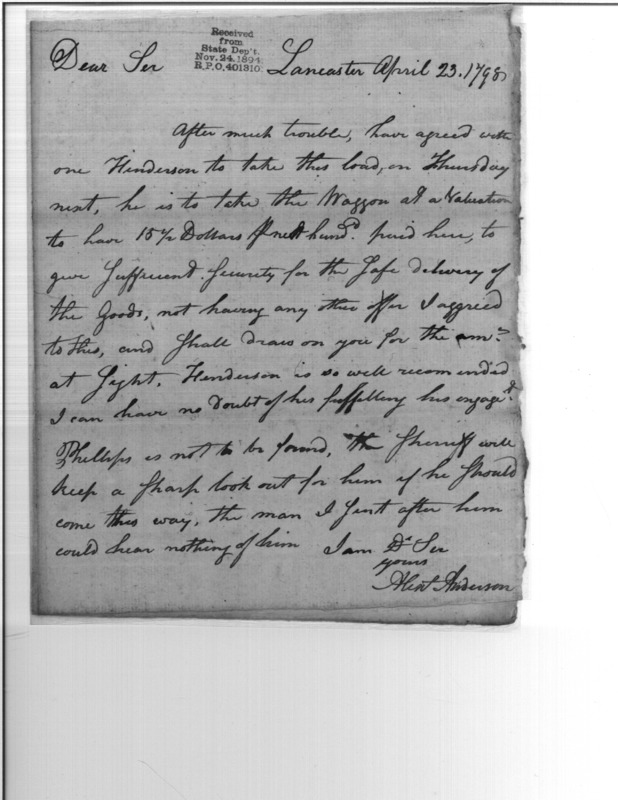 Received
from
State Dep't.
Nov. 24, 1894
R.P.O. 401310
Dear Sir Lancaster April 23. 1798
After much trouble, have agreed with
one Henderson to take this load, on Thursday
next, he is to take the Waggon at a Valuation
to have 15 1/2 Dollars nett hund.d paid here, to
give Sufficient Security for the Safe delivery of
the Goods, not having any other offer I aggreed
to this, and Shall draw on you for the am.t
at Sight. Henderson is so well recomended
I can have no Doubt of his fulfilling his engag.t
Phillips is not to be found, the Sherriff will
keep a Sharp look out for him if he Should
come this way, the man I Sent after him
could hear nothing of him I am D.r Sir
yours
Alex.r Anderson